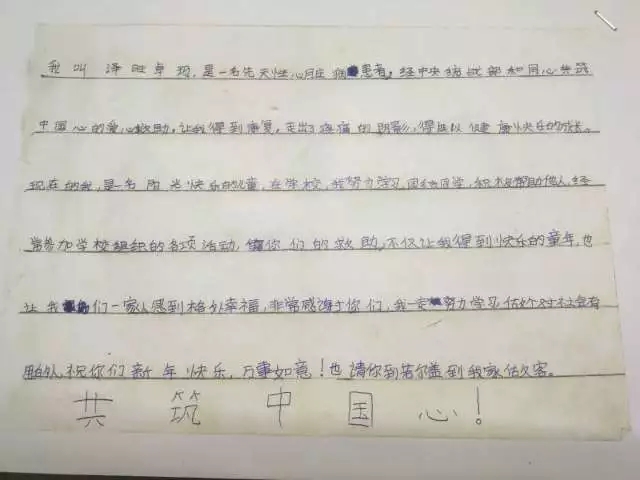 我叫泽旺卓玛,是一名先天性心脏病患者,经中央统战部和同心共筑
中国心的爱心救助,让我得到康复,走出了疼痛的阴影,得以健康快乐的成长。
现在的我,是一名阳光快乐的儿童,在学校,我努力学习,团结同学,积极帮助他人,经
常参加学校组织的各项活动,你们的救助,不仅让我得到快乐的童年,也
让我们一家人感到格外幸福,非常感谢于你们,我一定努力学习,做个对社会有
用的人,祝你们新年快乐,万事如意!也请你到若尔盖到我家做客。
共筑中国心!